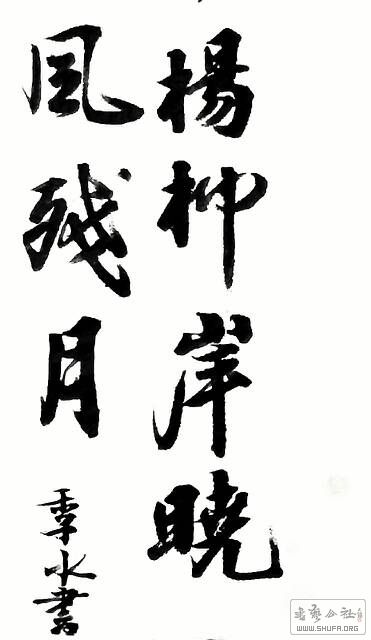 楊柳岸曉
風残月
季水書
书艺公社
WWW.SHUFA.ORG